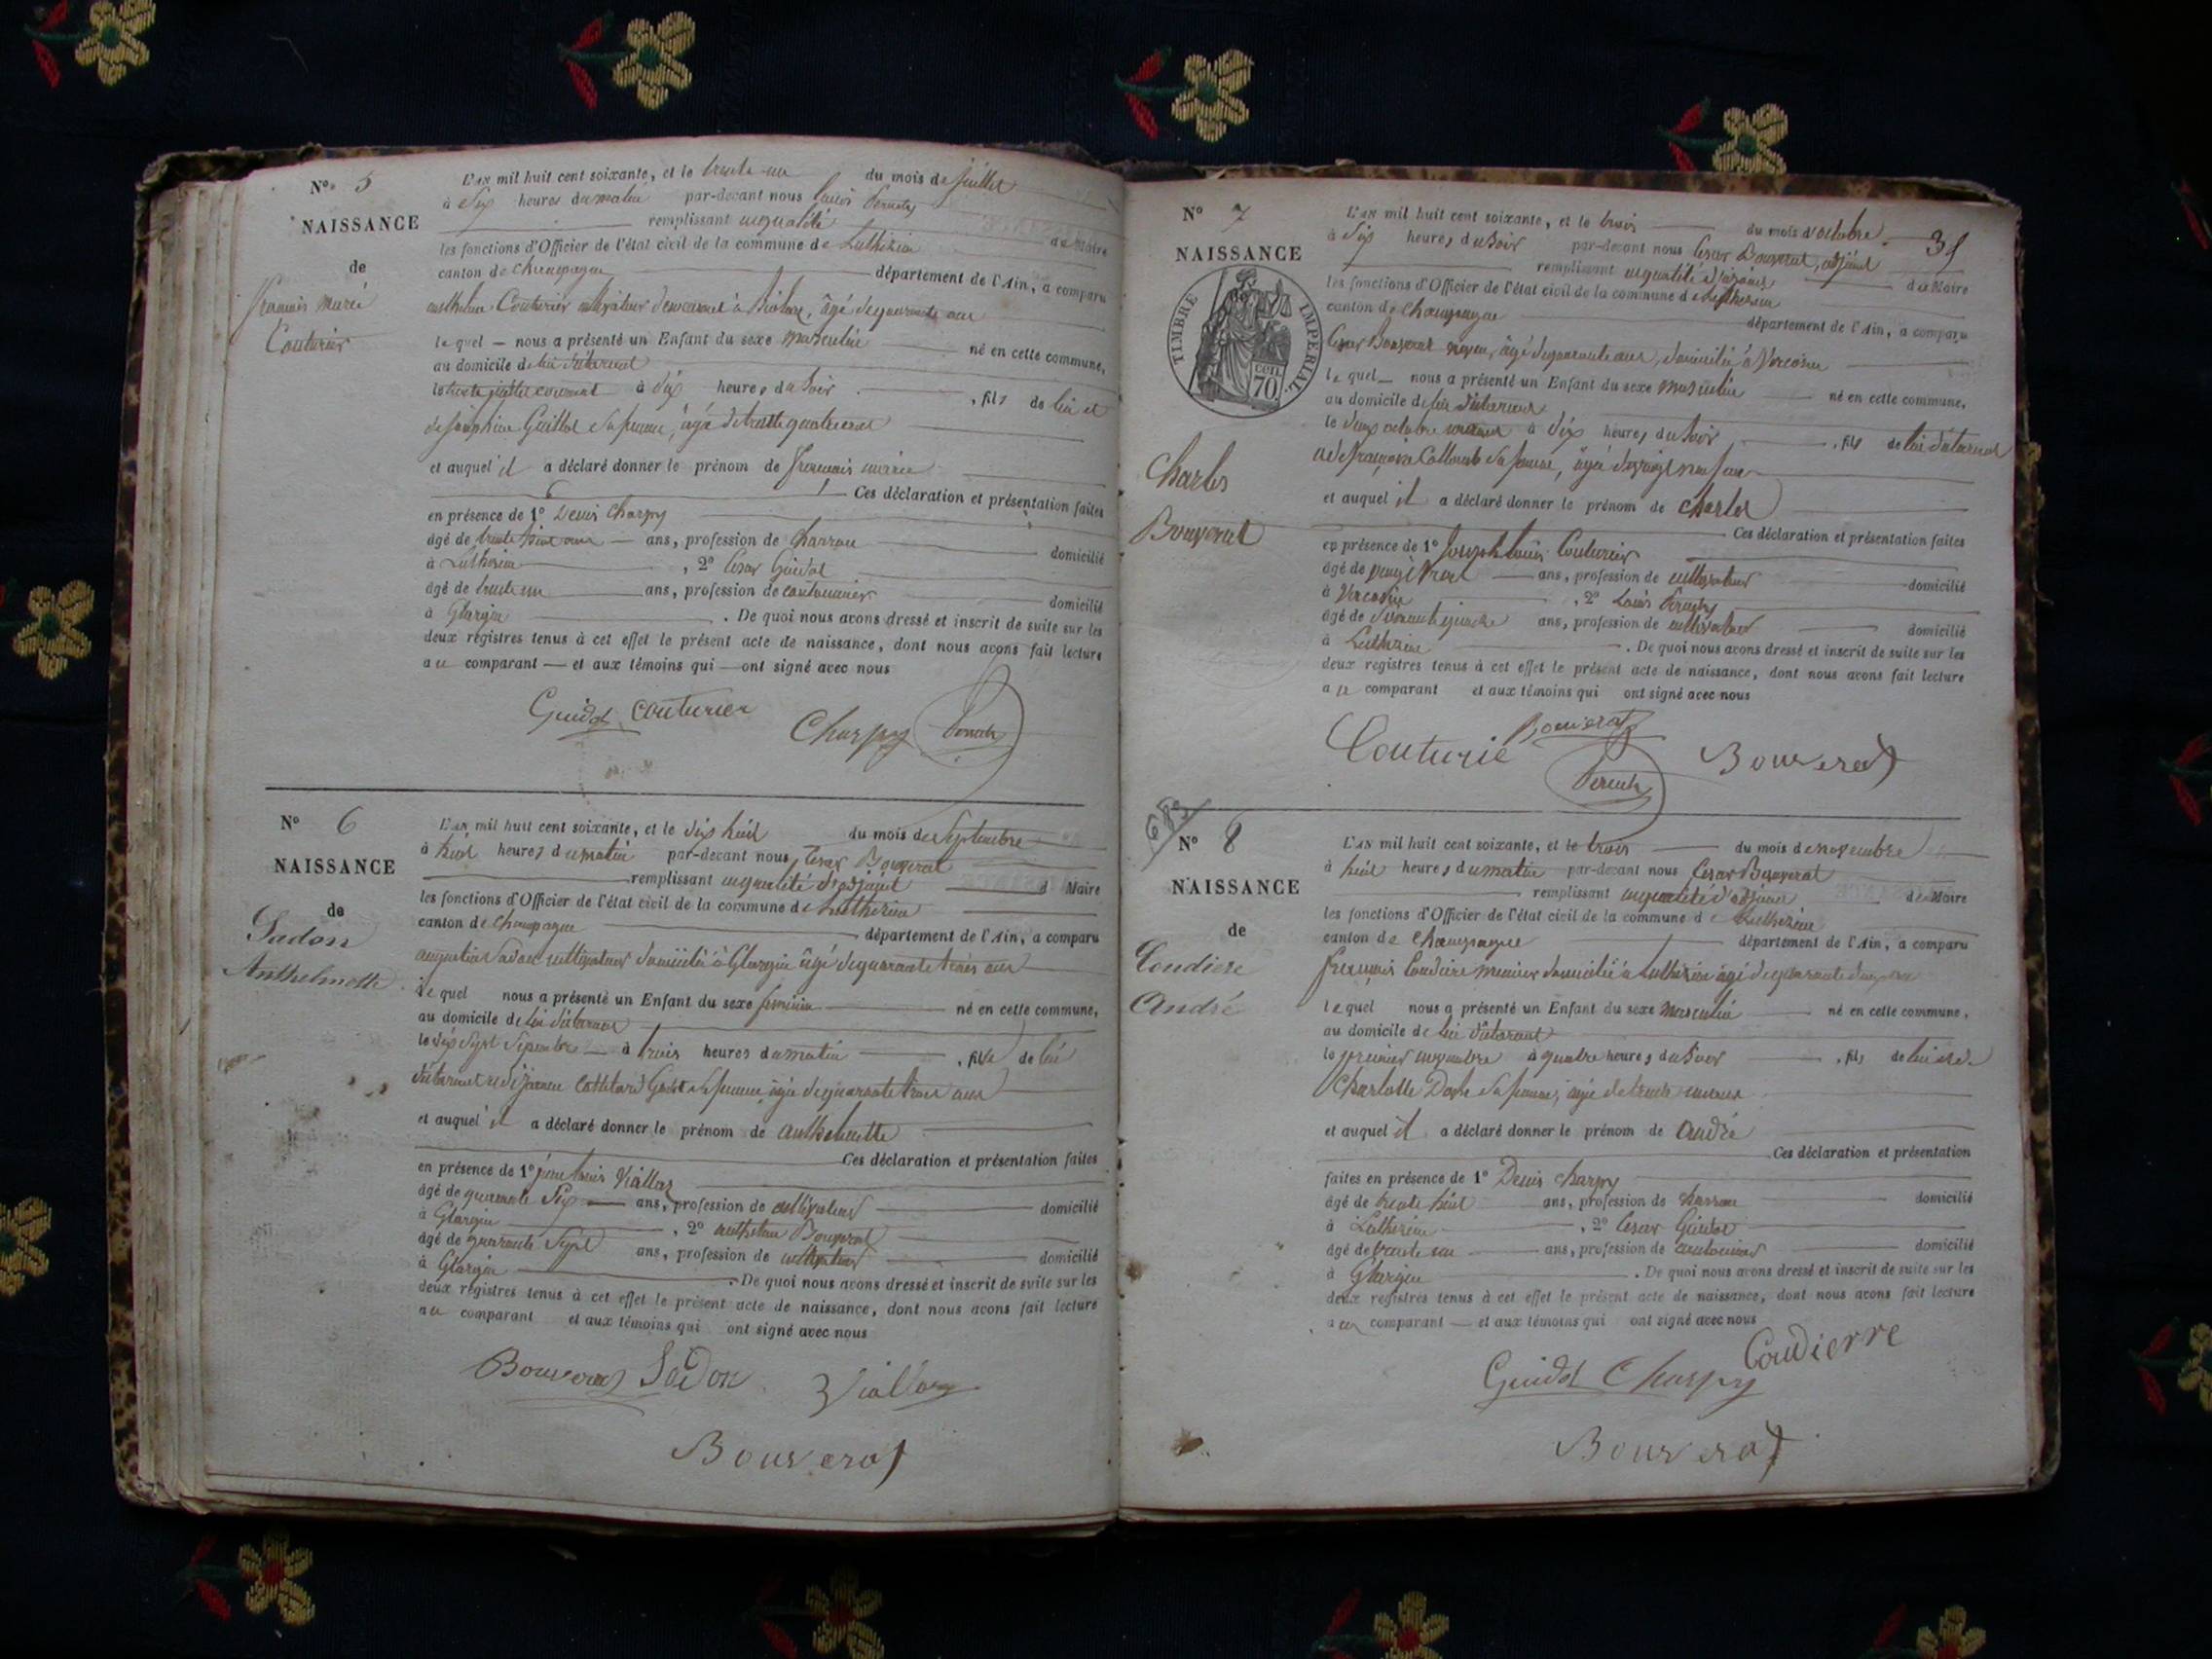 N° 5
NAISSANCE
de
François Marie
Couturier
L'an mil huit cent soixante, et le trente-un du mois de juillet
à six heures du matin par-devant nous Louis
remplissant en qualité de Maire
les fonctions d'Officier de l'état civil de la commune de Luthézieu
canton de Champagne département de l'Ain, a comparu
Anthelme Couturier cultivateur demeurant à âgé de quarante ans
lequel nous a présenté un Enfant du sexe masculin né en cette commune,
au domicile de lui déclarant
le trente juillet courant à dix heures du soir, fils de lui et
de Joséphine Guillot sa femme, âgée de trente quatre ans
et auquel il a déclaré donner le prénom de François marie
Ces déclaration et présentation faites
en présence de 1° Denis Charpy
âgé de trente huit ans ans, profession de charron domicilié
à Luthézieu, 2° César Guidot
âgé de trente un ans, profession de cantonnier domicilié
à Glargin. De quoi nous avons dressé et inscrit de suite sur les
deux registres tenus à cet effet le présent acte de naissance, dont nous avons fait lecture
au comparant et aux témoins qui ont signé avec nous
Guidot couturier
Charpy
N° 6
NAISSANCE
de
Sadon
Anthelmette
L'an mil huit cent soixante, et le dix huit du mois de Septembre
à huit heures du matin par-devant nous César Bouverat
remplissant en qualité d'adjoint d Maire
les fonctions d'Officier de l'état civil de la commune de Luthézieu
canton de Champagne département de l'Ain, a comparu
augustin Sadon cultivateur domicilié à Glargin âgé de quarante trois ans
le quel nous a présenté un Enfant du sexe féminin né en cette commune,
au domicile de lui déclarant
le dix sept Septembre à trois heures du matin, fille de lui
déclarant et de sa femme âgée de quarante trois ans
et auquel il a déclaré donner le prénom de anthelmette
Ces déclaration et présentation faites
en présence de 1° Viallaz
âgé de quarante six ans, profession de cultivateur domicilié
à Glargin, 2° anthelme Bouverat
âgé de quarante sept ans, profession de cultivateur domicilié
à Glargin. De quoi nous avons dressé et inscrit de suite sur les
deux registres tenus à cet effet le présent acte de naissance, dont nous avons fait lecture
au comparant et aux témoins qui ont signé avec nous
Bouverat Sadon Viallaz
Bouverat
N° 7
NAISSANCE
TIMBRE IMPERIAL
cen 70
Charles
Bouverat
L'an mil huit cent soixante, et le trois du mois d'octobre
à six heures du soir par-devant nous César Bouverat, adjoint
remplissant en qualité d'adjoint de Maire
les fonctions d'Officier de l'état civil de la commune de Luthézieu
canton de Champagne département de l'Ain, a comparu
César Bouverat âgé de quarante ans, domicilié à Vercosin
le quel nous a présenté un Enfant du sexe masculin né en cette commune,
au domicile de lui déclarant
le deux octobre courant à dix heures du soir, fils de lui déclarant
et de françoise Collomb sa femme, âgée de vingt neuf ans
et auquel il a déclaré donner le prénom de charles
Ces déclaration et présentation faites
en présence de 1° Joseph Louis Couturier
âgé de ans, profession de cultivateur domicilié
à Vercosin, 2° Louis
âgé de ans, profession de cultivateur domicilié
à Luthézieu. De quoi nous avons dressé et inscrit de suite sur les
deux registres tenus à cet effet le présent acte de naissance, dont nous avons fait lecture
au comparant et aux témoins qui ont signé avec nous
Couturie Bouverat Bouverat
N° 8
NAISSANCE
de
Coudiere
André
L'an mil huit cent soixante, et le trois du mois de novembre
à huit heures du matin par-devant nous César Bouverat
remplissant en qualité d'adjoint de Maire
les fonctions d'Officier de l'état civil de la commune de Luthézieu
canton de Champagne département de l'Ain, a comparu
françois Coudiere meunier domicilié à Luthézieu âgé de quarante deux ans
lequel nous a présenté un Enfant du sexe masculin né en cette commune,
au domicile de lui déclarant
le premier novembre à quatre heures du soir, fils de lui et de
Charlotte sa femme, âgée de trente
et auquel il a déclaré donner le prénom de André
Ces déclaration et présentation
faites en présence de 1° Denis Charpy
âgé de trente huit ans, profession de charron domicilié
à Luthézieu, 2° César Guidot
âgé de trente un ans, profession de cantonnier domicilié
à Glargin. De quoi nous avons dressé et inscrit de suite sur les
deux registres tenus à cet effet le présent acte de naissance, dont nous avons fait lecture
au comparant et aux témoins qui ont signé avec nous
Guidot Charpy Coudierre
Bouverat